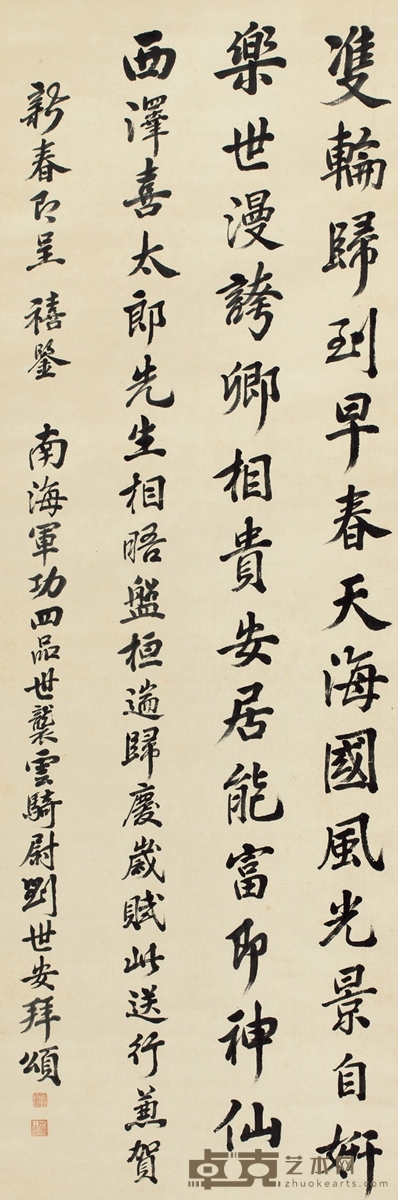 雙輪歸到早春天海國風光景自妍
樂世漫誇卿相貴安居能富即神仙
西澤喜太郎先生相晤盤桓遄歸慶歲賦此送行兼賀
新春即呈 禧鑒 南海軍功四品世襲雲騎尉劉世安拜頌
卓克艺术网
zhuokearts.com